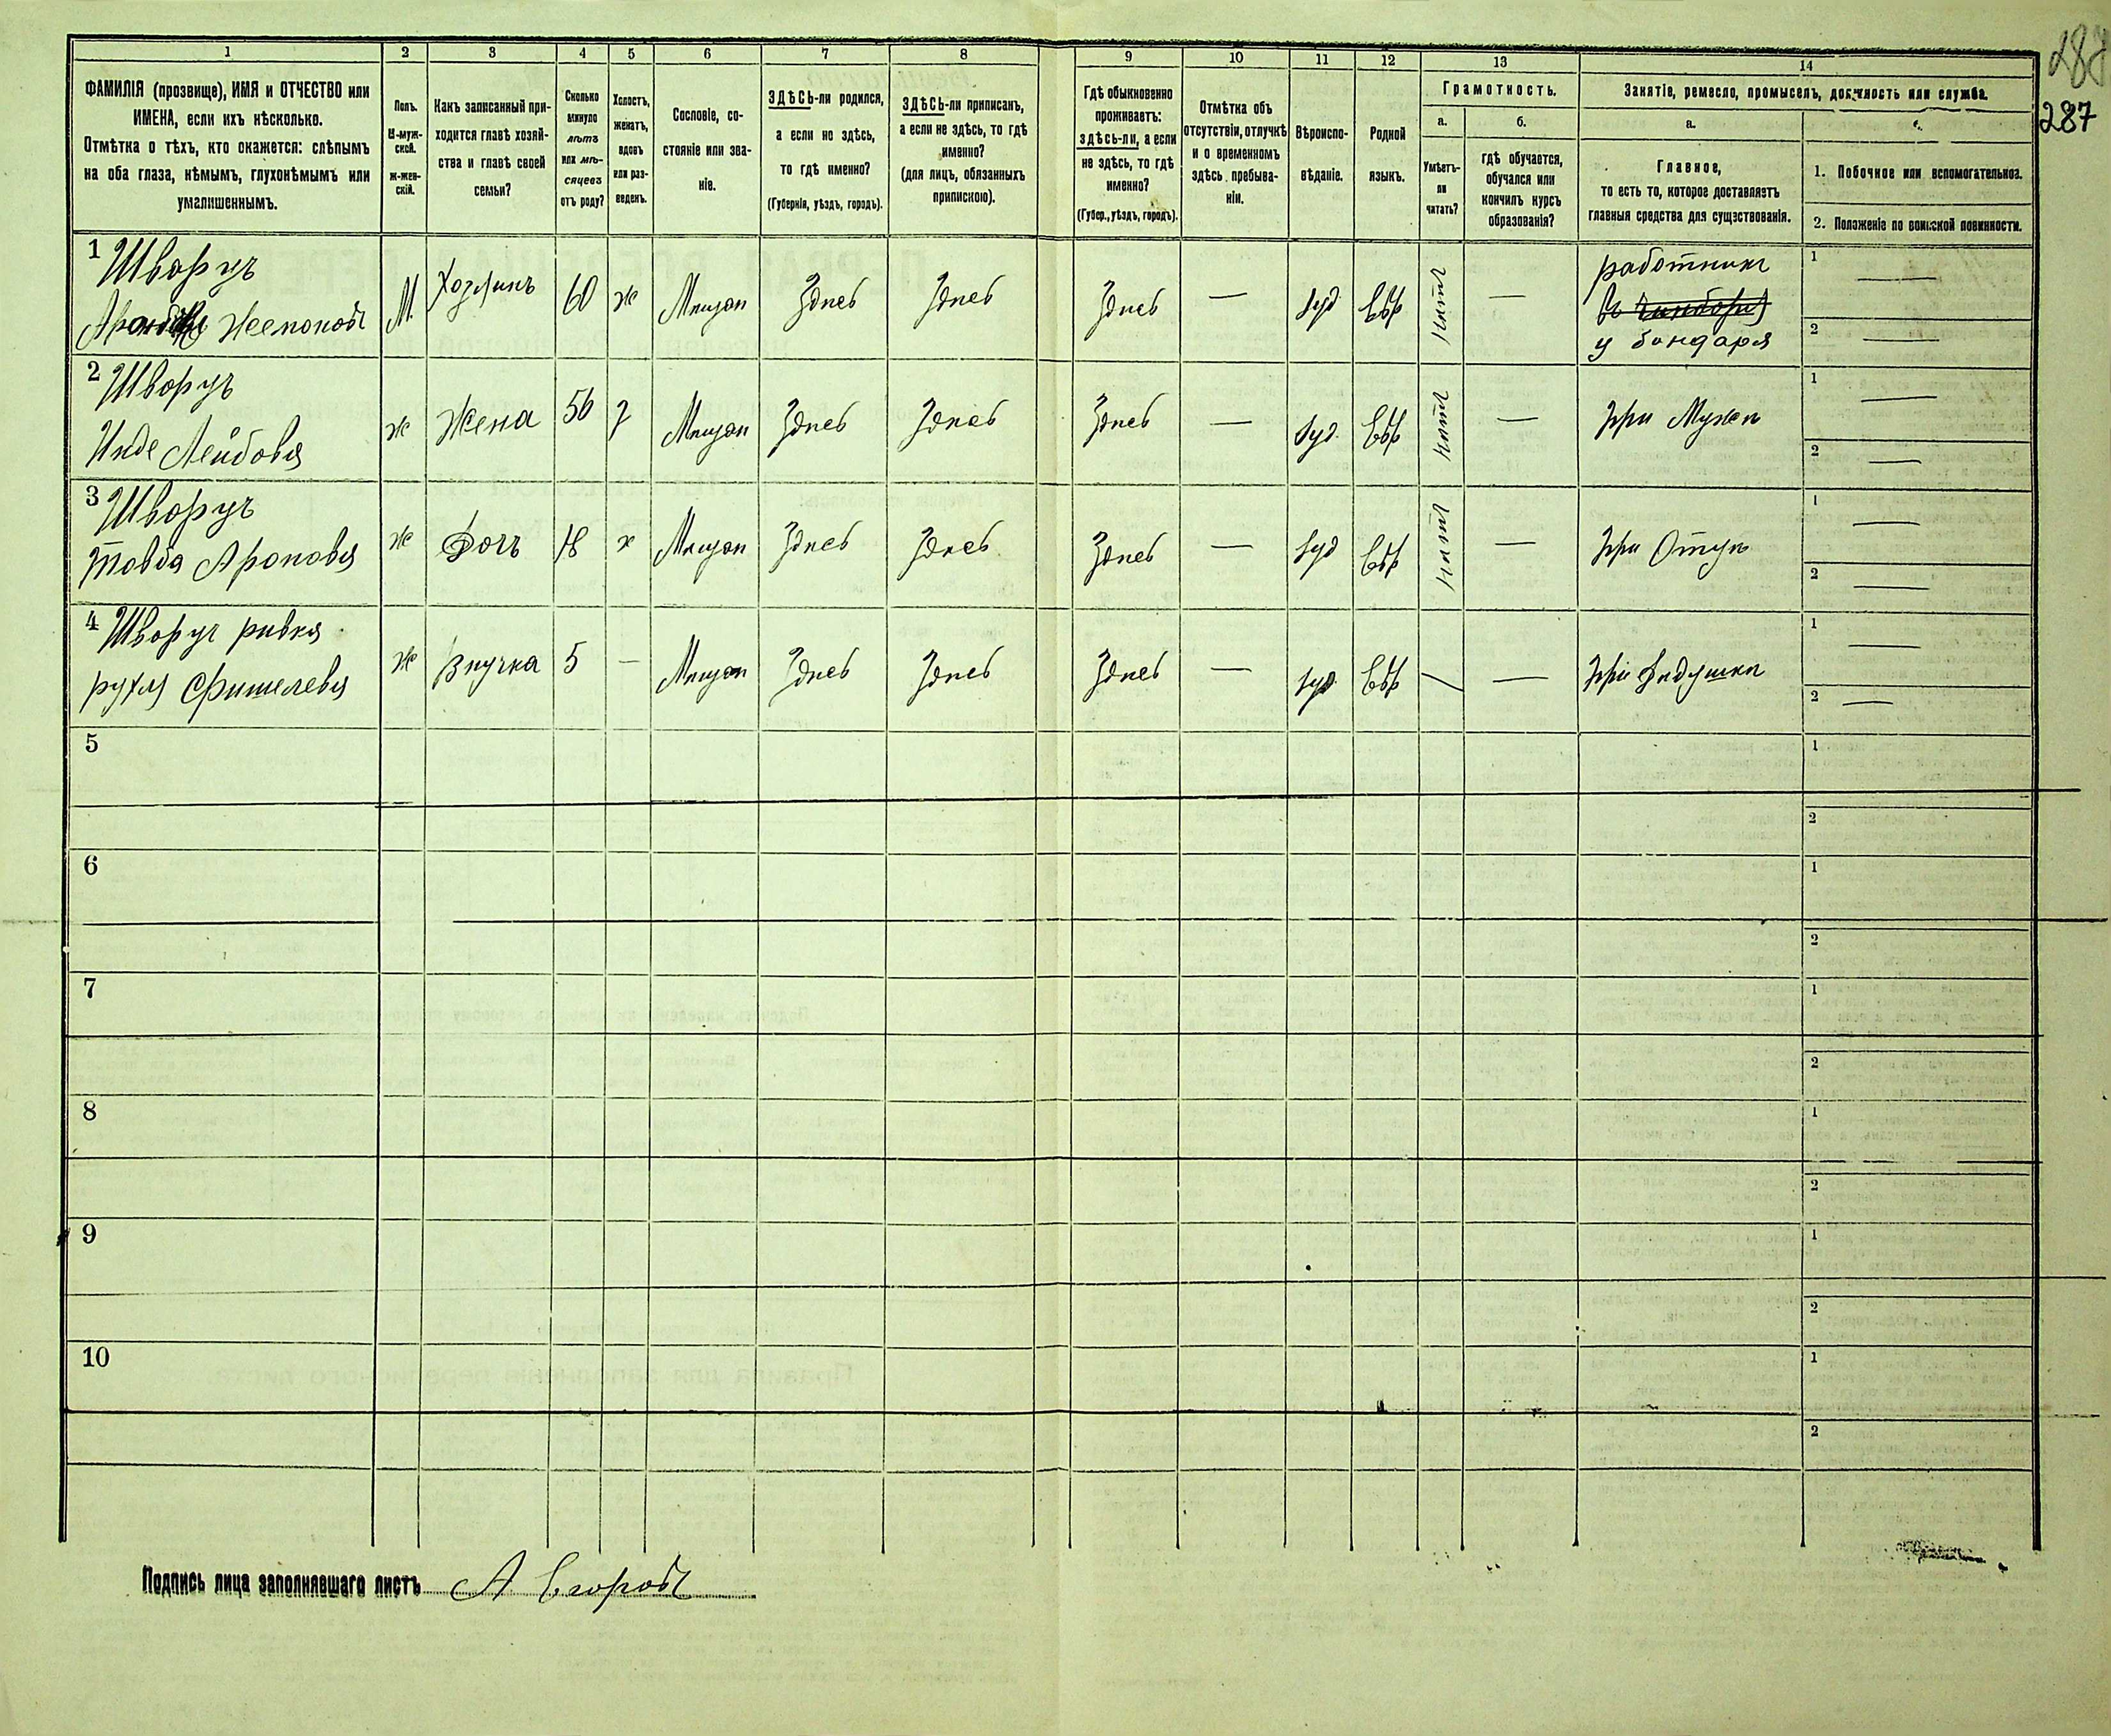 287
287
1
2
3
4
5
6
7
8
9
10
11
12
13
14
ФАМИЛІЯ (прозвище), ИМЯ и ОТЧЕСТВО или
ИМЕНА, если ихъ нѣсколько.
Отмѣтка о тѣхъ, кто окажется: слѣпымъ
на оба глаза, нѣмымъ, глухонѣмымъ или
умалишеннымъ.
Полъ.
М-муж-
ской.
ж-жен-
скій.
Какъ записанный при-
ходится главѣ хозяй-
ства и главѣ своей
семьи?
Сколько
минуло
лѣтъ
или мѣ-
сяцевъ
отъ роду?
Холостъ,
женатъ,
вдовъ
или раз-
веденъ.
Сословіе, со-
стояніе или зва-
ніе.
ЗДѢСЬ-ли родился,
а если не здѣсь,
то гдѣ именно?
(Губернія, уѣздъ, городъ).
ЗДѢСЬ-ли приписанъ,
а если не здѣсь, то гдѣ
именно?
(для лицъ, обязанныхъ
припискою).
Гдѣ обыкновенно
проживаетъ:
здѣсь-ли, а если
не здѣсь, то гдѣ
именно?
(Губер., уѣздъ, городъ).
Отмѣтка объ
отсутствіи, отлучкѣ
и о временномъ
здѣсь пребыва-
ніи.
Вѣроиспо-
вѣданіе.
Родной
языкъ.
Грамотность.
а.
Умѣетъ-
ли
читать?
б.
гдѣ обучается,
обучался или
кончилъ курсъ
образованія?
Занятіе, ремесло, промыселъ, должность или служба.
а.
Главное,
то есть то, которое доставляетъ
главныя средства для существованія.
1. Побочное или вспомогательное.
2. Положеніе по воинской повинности.
1 Шворцъ М. Хозяинъ 60 ж Мещан Здпсь Здпсь Здпсь — Іуд Евр нптъ — работникъ 1 —
у бондаря 2 —
2 Шворцъ
Инде Лейбовя ж Жена 56 з Мещан Здпсь Здпсь Здпсь — Іуд. Евр нптъ — При Мужп 1 —
2 —
3 Шворцъ
Товба Ароновя ж Дочь 18 х Мещан Здпсь Здпсь Здпсь — Іуд Евр нптъ — При Отцп 1 —
2 —
4 Шворцъ ривкя
рухля Фишелевя ж Внучка 5 — Мещан Здпсь Здпсь Здпсь — Іуд Евр / — При Дидушки 1 —
2 —
5 1
2
6 1
2
7 1
2
8 1
2
9 1
2
10 1
2
Подпись лица заполнявшаго листъ